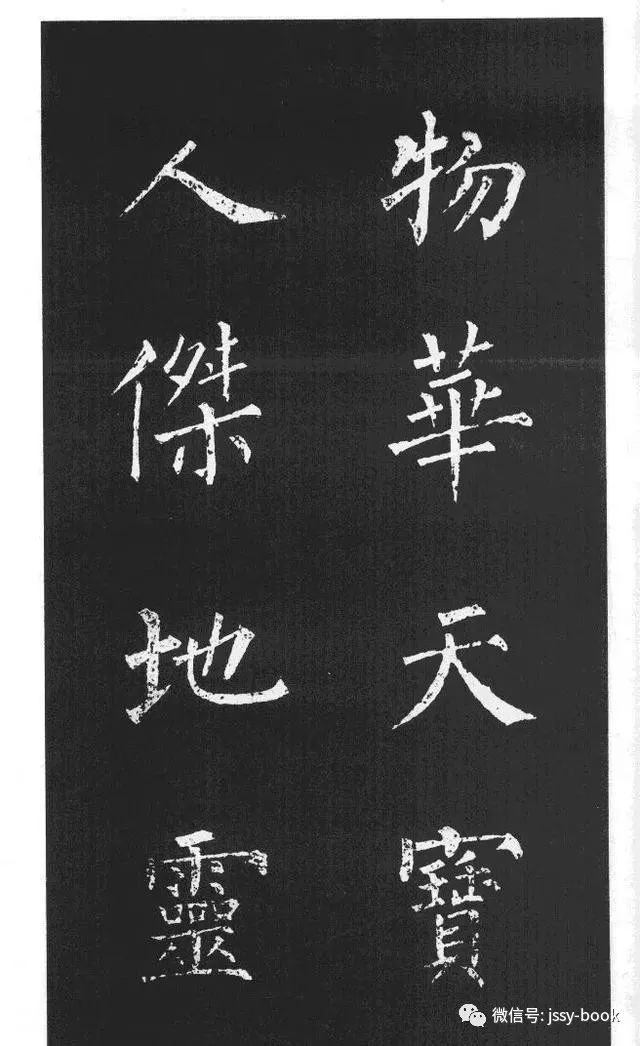 物華天寶
人傑地靈
微信号: jssy-book